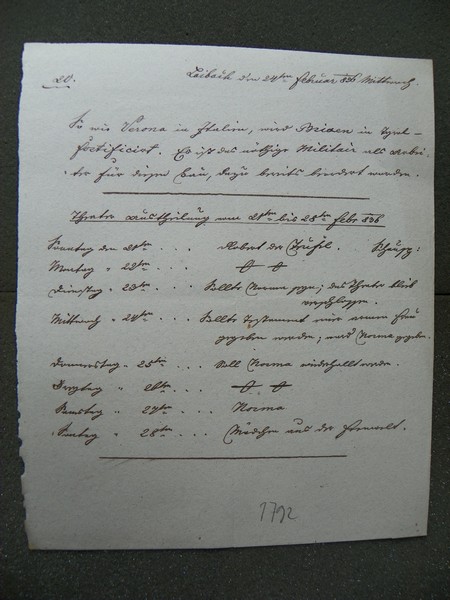 20.
Laibach den 24ten Februar 836 Mittwoch.
So wie Verona in Italien, wird Brixen in Tyrol
fortificirt. Es ist das nöthige Militair als Arbei-
ter für diesen Bau, dazu bereits beordert worden.
Theater Austheilung vom 21ten bis 28ten Febr 836
Sonntag den 21ten . . . Robert der Teufel.
Montag " 22ten . . .
Dienstag " 23ten . . . Sollte Norma seyn; das Theater blieb
verschlossen.
Mittwoch " 24ten . . . Sollte Testament einer armen Frau
gegeben werden; ward Norma gegeben.
Donnerstag " 25ten . . . Soll Norma wiederhollt werden.
Freytag " 26ten . . .
Samstag " 27ten . . . Norma
Sontag " 28ten . . . Mädchen aus der Feenwelt.
1792